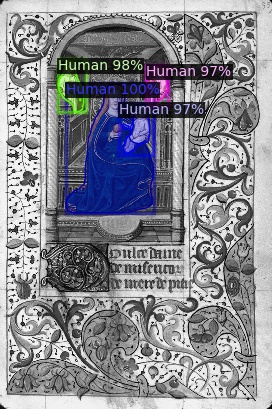 Human 98%
Human 97%
Human 100%
Human 97%
Doulce dame
de misericor
de mere de pitie